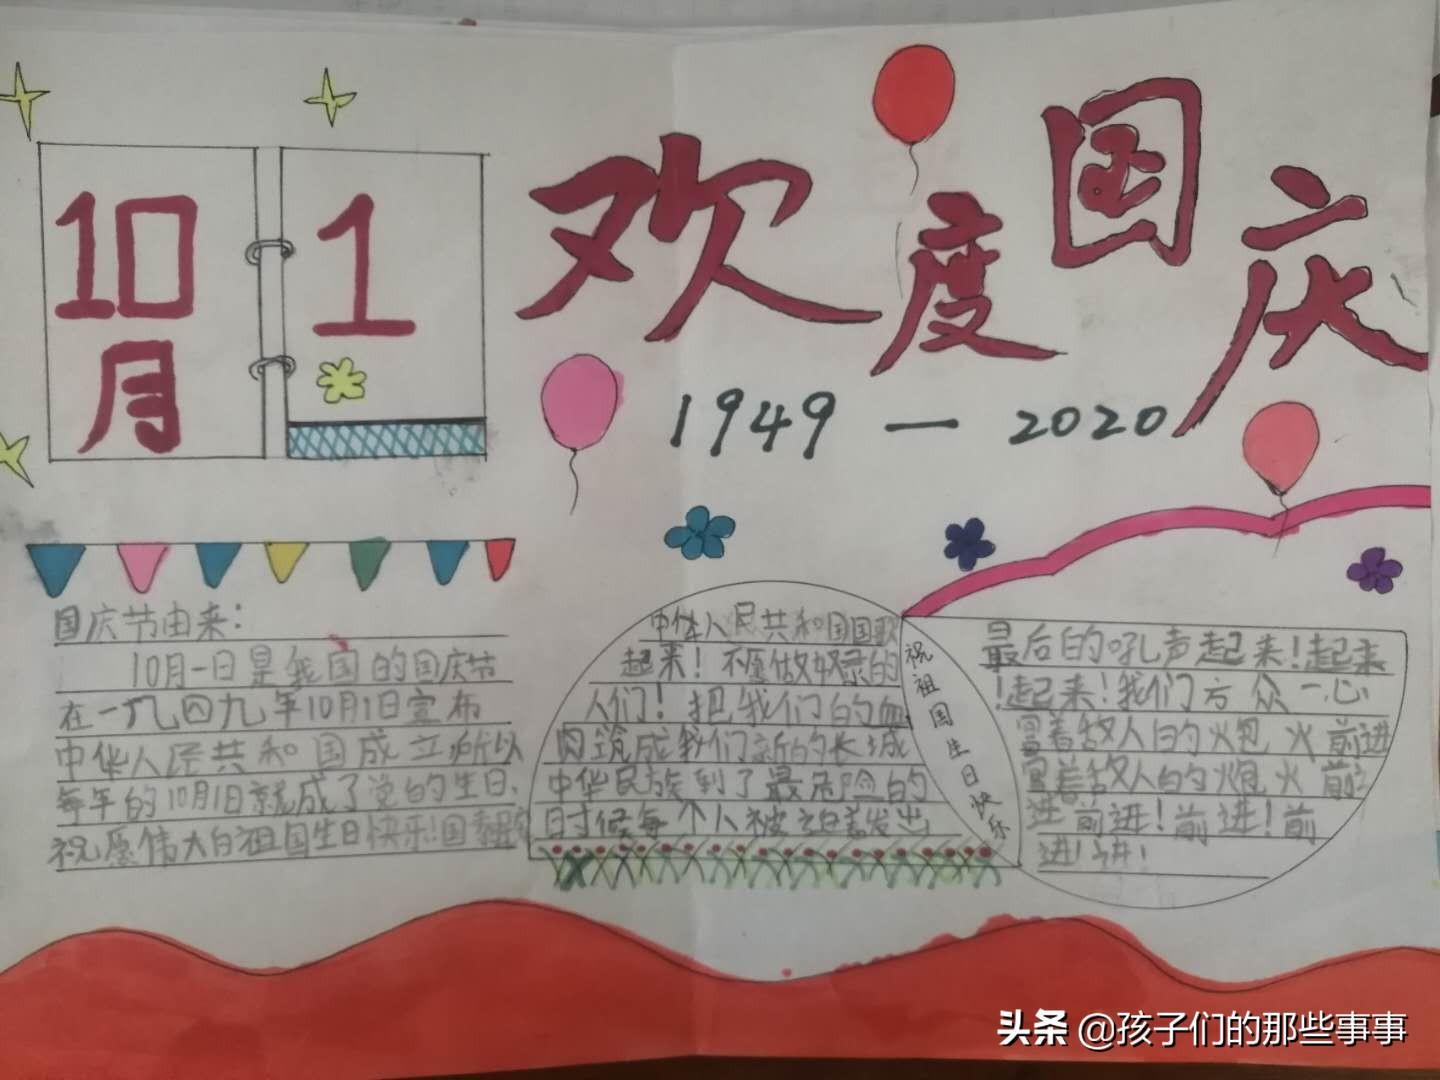 10
月
1
欢度国庆
1949—2020
国庆节由来：
10月一日是我国的国庆节
在一九四九年10月1日宣布
中华人民共和国成立所以
每年的10月1日就成了党的生日、
祝愿伟大的祖国生日快乐！国泰
中华人民共和国国歌
起来！不愿做奴隶的
人们！把我们的血
肉筑成我们新的长城
中华民族到了最危险的
时候每个人被迫着发出
祝祖国生日快乐
最后的吼声起来！起来
！起来！我们万众一心
冒着敌人的炮火前进
冒着敌人的炮火前
进前进！前进！前
进！进！
头条 @孩子们的那些事事